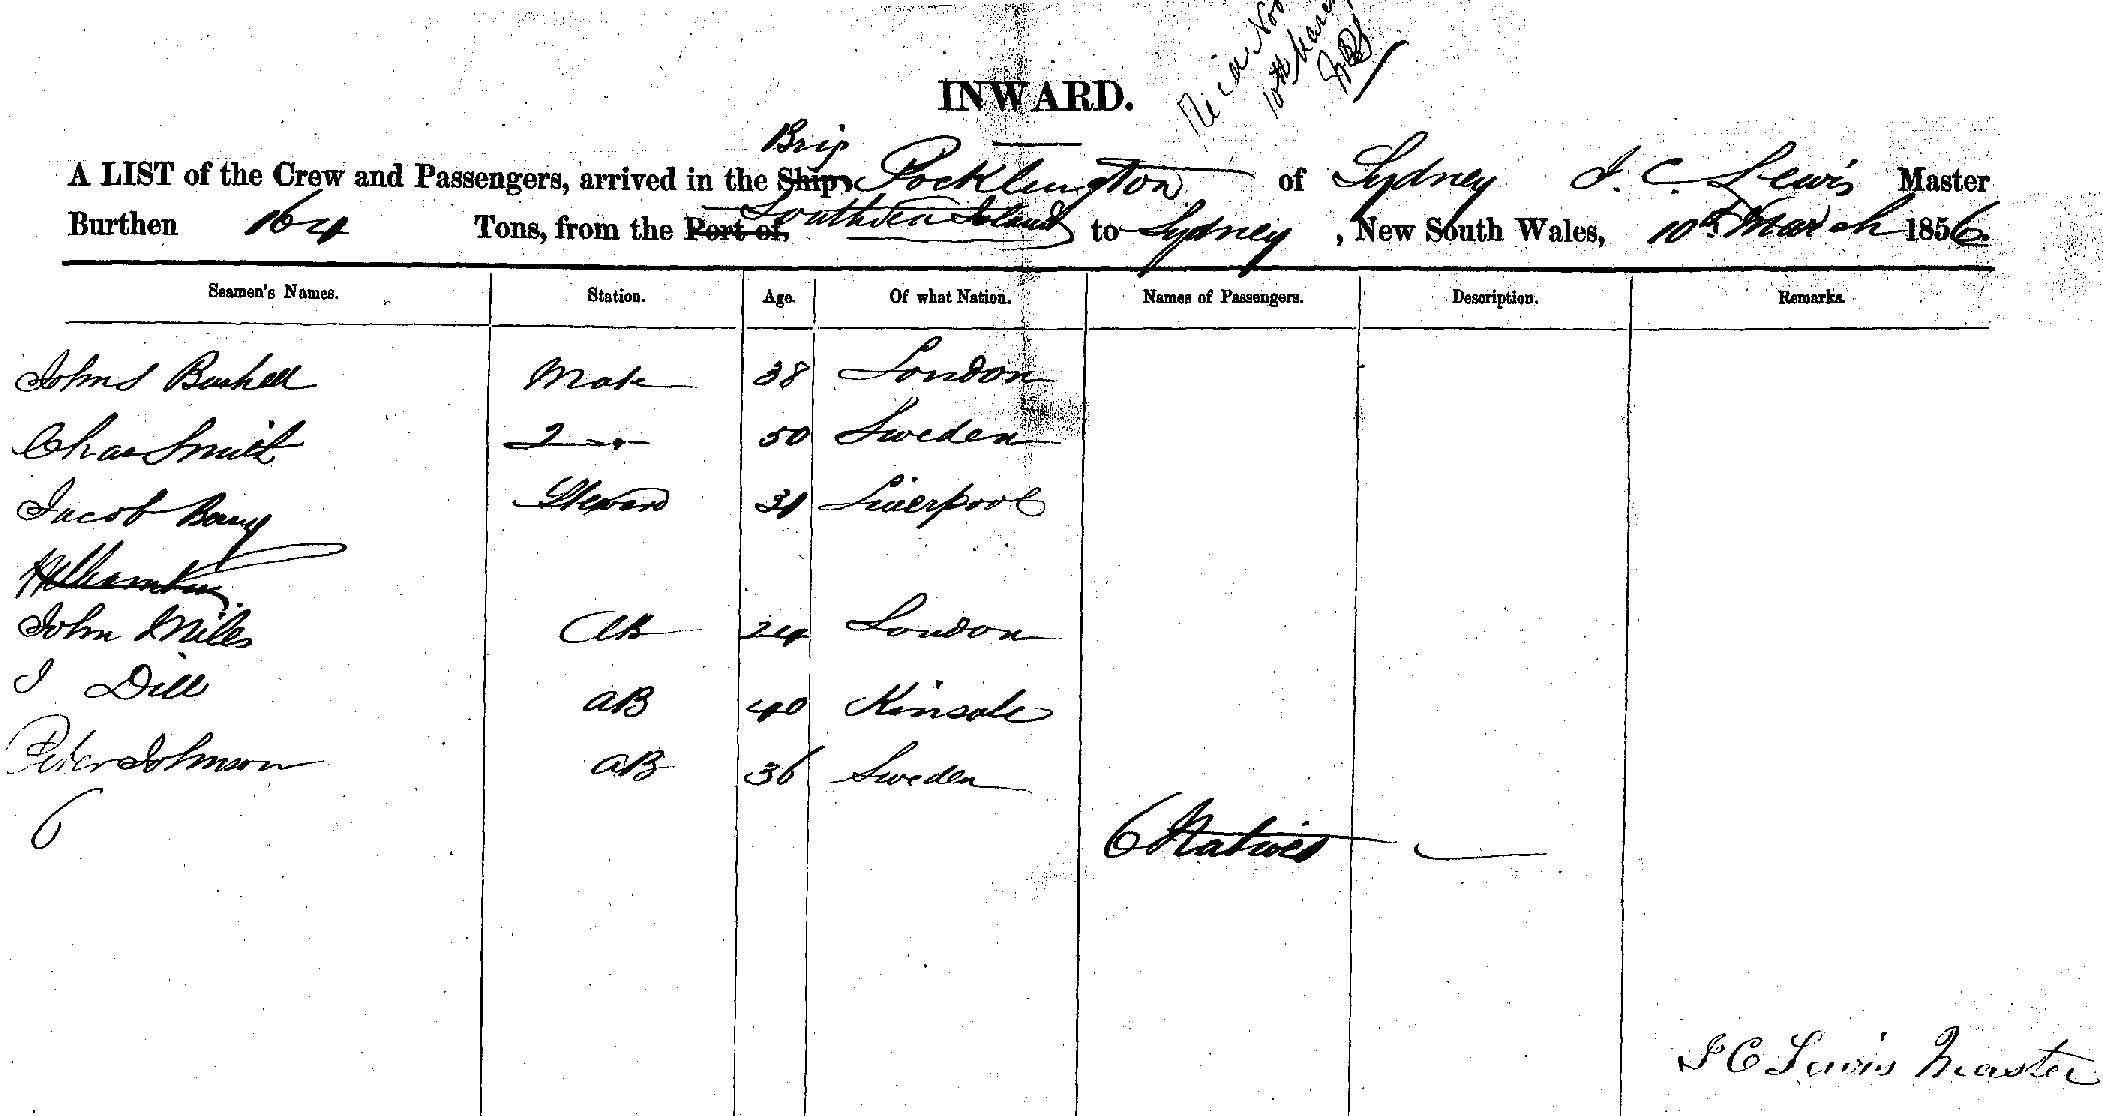 10th March
INWARD.
Brig
A LIST of the Crew and Passengers, arrived in the Ship, Pocklington of Sydney J. C. Lewis Master
South Sea Island
Burthen 164 Tons, from the Port of, to Sydney, New South Wales, 10th March 1856
Seamen's Names. Station. Age. Of what Nation. Names of Passengers. Description. Remarks.
John Mate 38 London
Chas Smith 2 50 Sweden
Jacob Steward 31 Liverpool
John Miles AB 24 London
J Dill AB 40 Kinsale
Peter Johnson AB 36 Sweden
6
6 Natives
J C Lewis Master